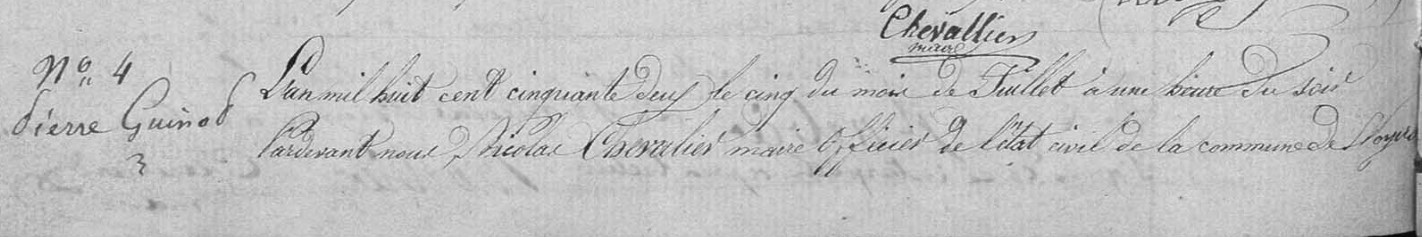 Chevallier
maire
No 4
L'an mil huit cent cinquante deux le cinq du mois de Juillet à une heure du soir
Pierre Guinod
Pardevant nous Nicolas Chevalier maire officier de l'état civil de la commune de
3